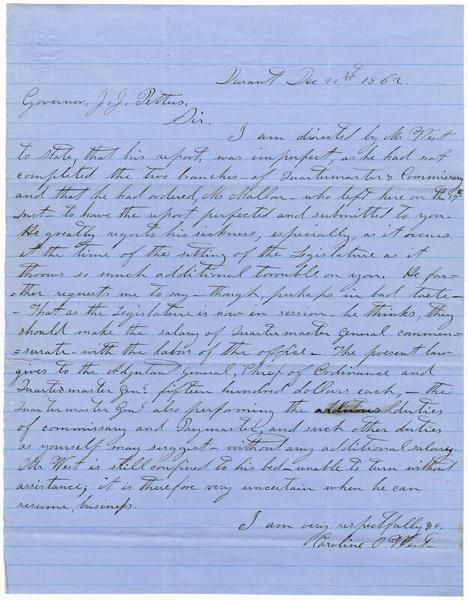 Durant Dec 21st 1862
Governor, J. J. Pettus,
Sir.
I am directed by Mr West
to state, that his report, was imperfect, as he had not
completed the two branches - of Quartermaster & Commissary
and that he had ordered, Mr - who left here on the
Inst - to have the report perfected and submitted to you
He greatly regrets his sickness, especially, as it occurs
at the time of the sitting of the Legislature as it
throws so much additional trouble on you. He fur-
=ther requests me to say - though, perhaps in bad taste -
- That as the Legislature is now in session - he thinks, they
should make the salary of Quartermaster General commen-
=surate - with the labors of the office - The present law
gives to the Adjutant General, Chief of Ordinance and
Quartermaster Genl fifteen hundred dollars each, - the
Quartermaster Genl also performing the duties
of commissary and Paymaster, and such other duties
as yourself may suggest - without any additional salary.
Mr. West is still confined to his bed - unable to turn without
assistance; it is therefore very uncertain when he can
resume, business.
I am very respectfully &c,
Caroline O West -